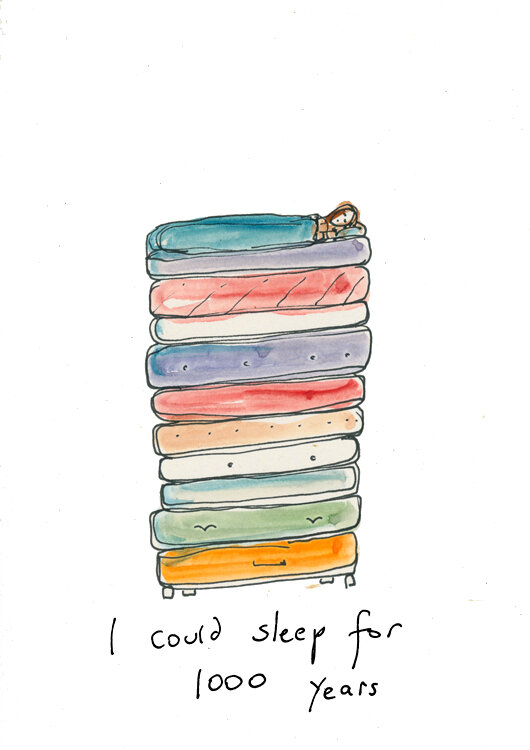 I could sleep for
1000 years